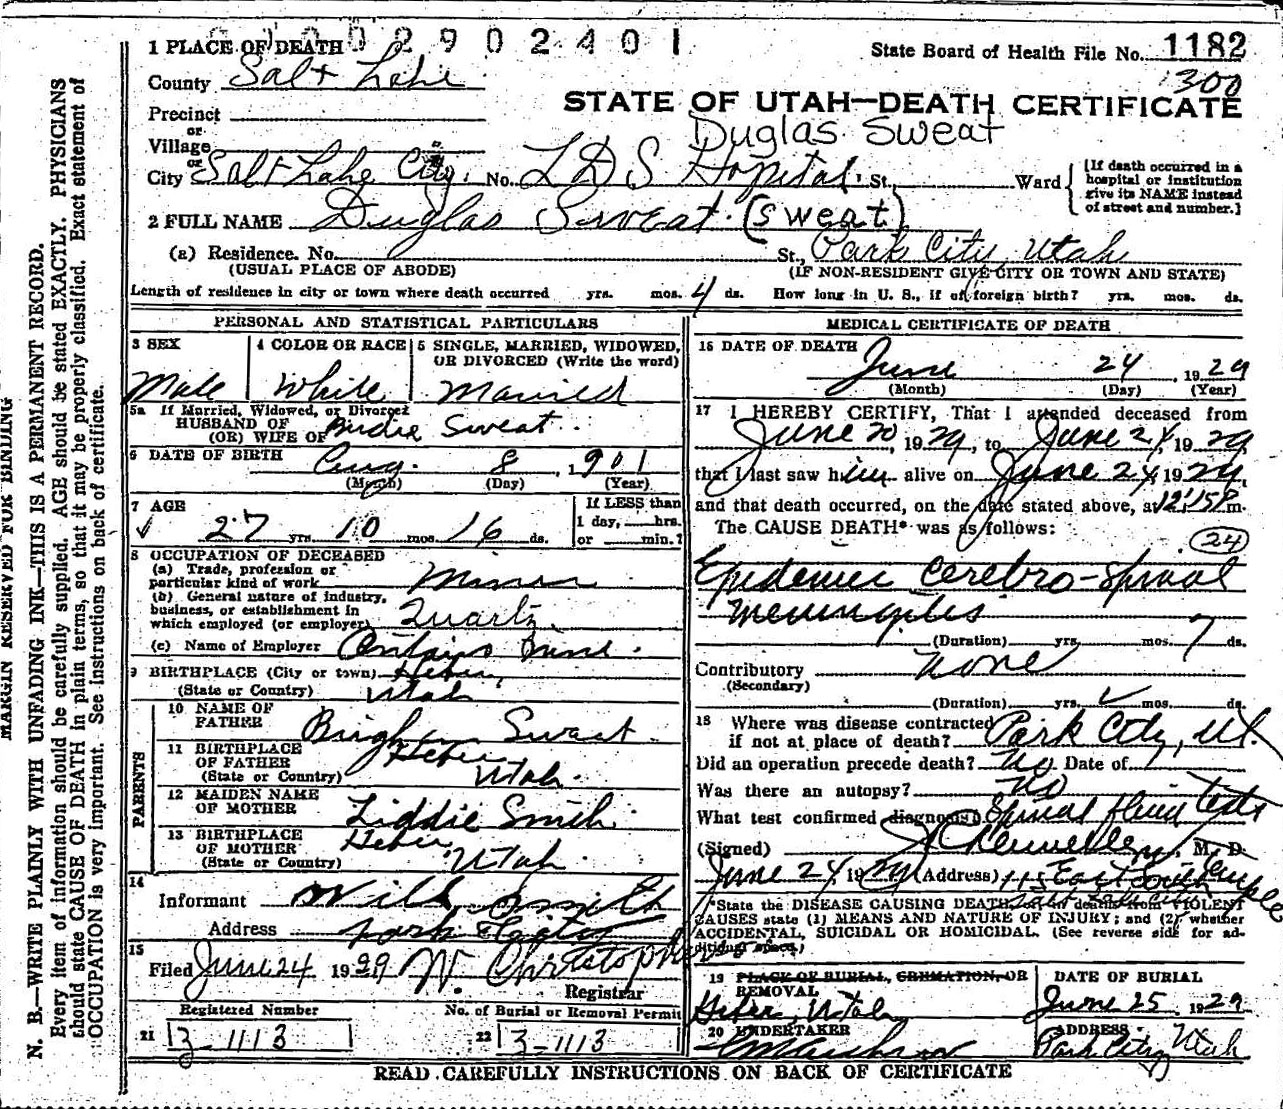 0002902401
1 PLACE OF DEATH
State Board of Health File No. 1182
1300
County Salt Lake
STATE OF UTAH—DEATH CERTIFICATE
Precinct
or
Village
Duglas Sweat
or
City Salt Lake City. No. L D S Hopital. St., Ward
[If death occurred in a hospital or institution give its NAME instead of street and number.]
2 FULL NAME Duglas Sweat. (Sweat)
(a) Residence. No. St., Park City, Utah
(USUAL PLACE OF ABODE) (IF NON-RESIDENT GIVE CITY OR TOWN AND STATE)
Length of residence in city or town where death occurred yrs. mos. 4 ds. How long in U. S., if of foreign birth? yrs. mos. ds.
PERSONAL AND STATISTICAL PARTICULARS
3 SEX 4 COLOR OR RACE 5 SINGLE, MARRIED, WIDOWED,
OR DIVORCED (Write the word)
Male White Married
5a If Married, Widowed, or Divorced
HUSBAND OF
(OR) WIFE OF Birdie Sweat.
6 DATE OF BIRTH Aug. 8, 1901
(Month) (Day) (Year)
7 AGE If LESS than
27 yrs. 10 mos. 16 ds. 1 day, hrs.
or min.?
8 OCCUPATION OF DECEASED
(a) Trade, profession or
particular kind of work Miner
(b) General nature of industry,
business, or establishment in
which employed (or employer) Quartz
(c) Name of Employer
9 BIRTHPLACE (City or town) Heber,
(State or Country) Utah
PARENTS
10 NAME OF
FATHER Brigham Sweat
11 BIRTHPLACE
OF FATHER Heber
(State or Country) Utah.
12 MAIDEN NAME
OF MOTHER Liddie Smith.
13 BIRTHPLACE
OF MOTHER Heber,
(State or Country) Utah.
14
Informant Will Smith
Address Park City
15
Filed June 24 1929 W. Christopherson
Registrar
Registered Number No. of Burial or Removal Permit
21 3-1113 22 3-1113
MEDICAL CERTIFICATE OF DEATH
16 DATE OF DEATH
June 24, 1929
(Month) (Day) (Year)
17 I HEREBY CERTIFY, That I attended deceased from
June 20, 1929, to June 24, 1929
that I last saw him alive on June 24, 1929,
and that death occurred, on the date stated above, at 12:15 P.m.
The CAUSE DEATH* was as follows:
24
Epidemic Cerebro-Spinal
Meningitis
(Duration) yrs. mos. 7 ds.
Contributory None
(Secondary)
(Duration) yrs. mos. ds.
18 Where was disease contracted
if not at place of death? Park City, Ut.
Did an operation precede death? No Date of
Was there an autopsy? No
What test confirmed diagnosis? Spinal fluid tests
(Signed) , M. D.
June 24, 1929 (Address) 115 East South Temple
Salt Lake City
*State the DISEASE CAUSING DEATH, or in deaths from VIOLENT
CAUSES state (1) MEANS AND NATURE OF INJURY; and (2) whether
ACCIDENTAL, SUICIDAL OR HOMICIDAL. (See reverse side for ad-
ditional space.)
19 PLACE OF BURIAL, CREMATION, OR
REMOVAL
Heber, Utah
DATE OF BURIAL
June 25, 1929
20 UNDERTAKER
ADDRESS
Park City Utah
READ CAREFULLY INSTRUCTIONS ON BACK OF CERTIFICATE
MARGIN RESERVED FOR BINDING
N. B.—WRITE PLAINLY WITH UNFADING INK—THIS IS A PERMANENT RECORD.
Every item of information should be carefully supplied. AGE should be stated EXACTLY. PHYSICIANS
should state CAUSE OF DEATH in plain terms, so that it may be properly classified. Exact statement of
OCCUPATION is very important. See instructions on back of certificate.